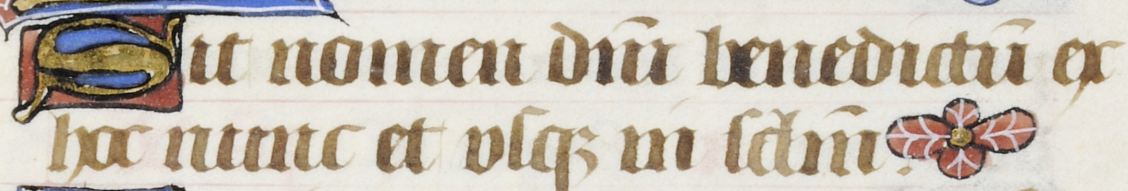 Sit nomen dn̄i benedictū ex
hoc nunc et vsqꝫ in sclm̄